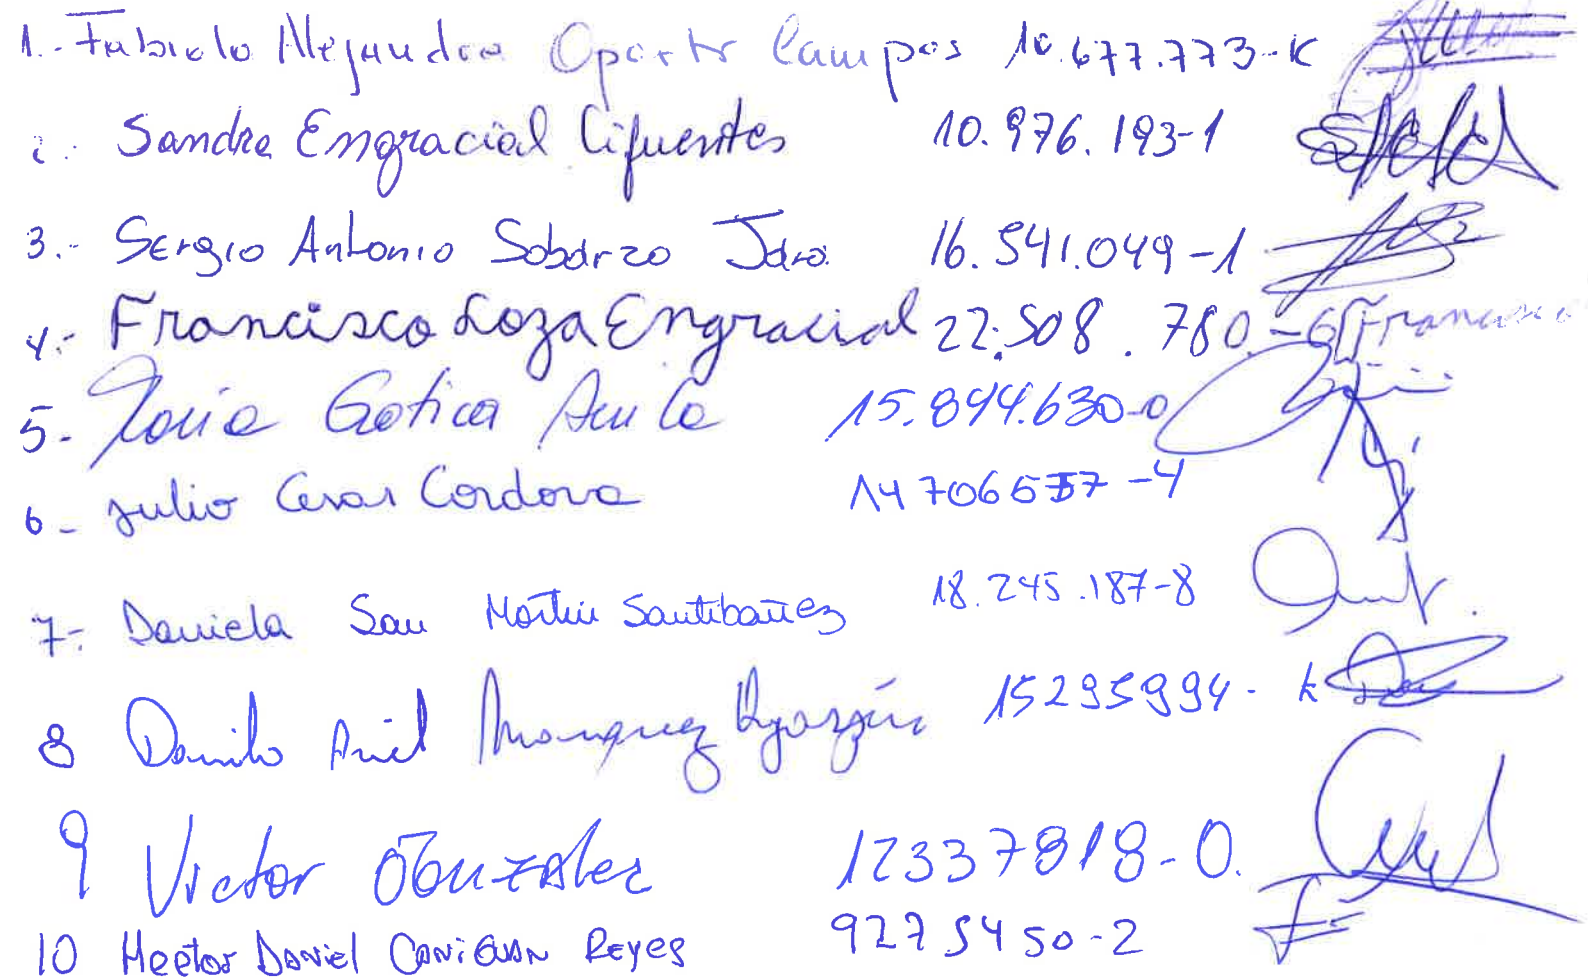 1.- Fabiola Alejandra Oporto Campos 10.677.773-K
2.- Sandra Engracial Cifuentes 10.976.193-1
3.- Sergio Antonio Sobarzo Jara 16.541.049-1
4.- Francisco Loza Engracial 22.508.780-6 Francisco
5- Gatica 15.894.630-0
6- Julio Cesar Cordova 14706557-4
7- Daniela San Martin Santibañez 18.245.187-8
8 Danilo Ariel Marquez Oyarzún 15295994-K
9 Victor Gonzalez 12337818-0.
10 Hector Daniel Reyes 9275450-2